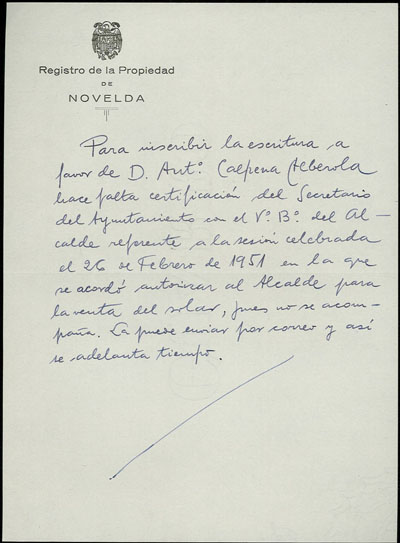 Registro de la Propiedad
DE
NOVELDA
Para inscribir la escritura a
favor de D. Antº Calpena Alberola
hace falta certificación del Secretario
del Ayuntamiento con el Vº Bº del Al-
calde referente a la sesión celebrada
el 26 de Febrero de 1951 en la que
se acordó autorizar al Alcalde para
la venta del solar, pues no se acom-
paña. La puede enviar por correo y así
se adelanta tiempo.